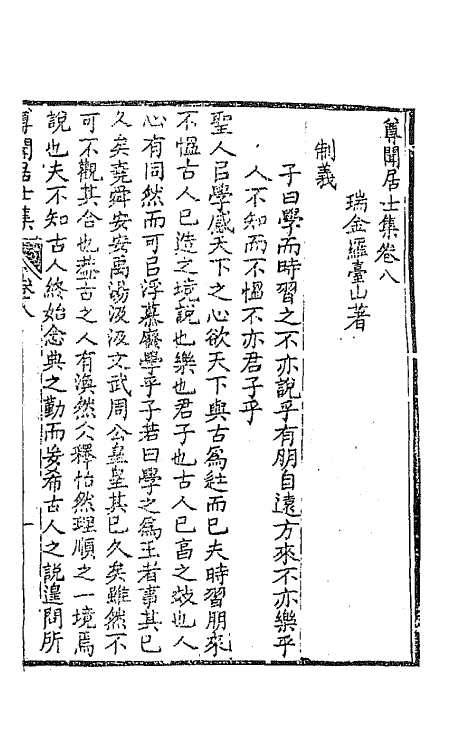 尊聞居士集卷八
瑞金羅臺山著
制義
子曰學而時習之不亦說乎有朋自遠方來不亦樂乎
人不知而不慍不亦君子乎
聖人㠯學感天下之心欲天下與古為徒而已夫時習朋來
不慍古人已造之境說也樂也君子也古人已高之效也人
心有同然而可㠯浮慕廢學乎子若曰學之為王者事其已
久矣堯舜安安禹湯汲汲文武周公皇皇其已久矣雖然不
可不觀其合也葢古之人有渙然久釋怡然理順之一境焉
說也夫不知古人終始念典之勤而妄希古人之說遑問所
尊聞居士集 卷八 一